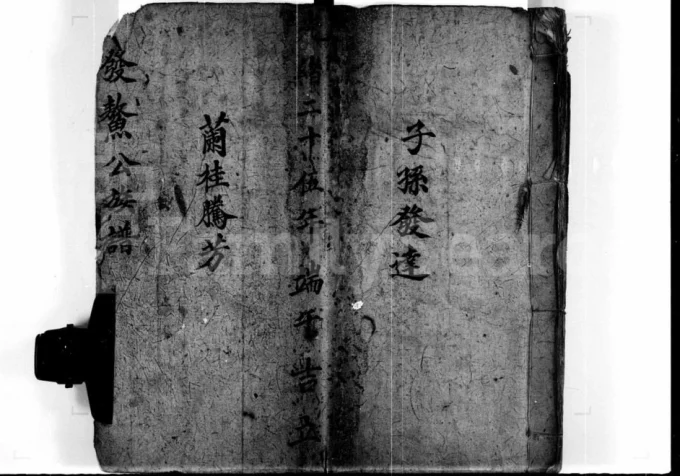 子孫發達
二十伍年端午
蘭桂騰芳
發鰲公族譜
FamilySearch